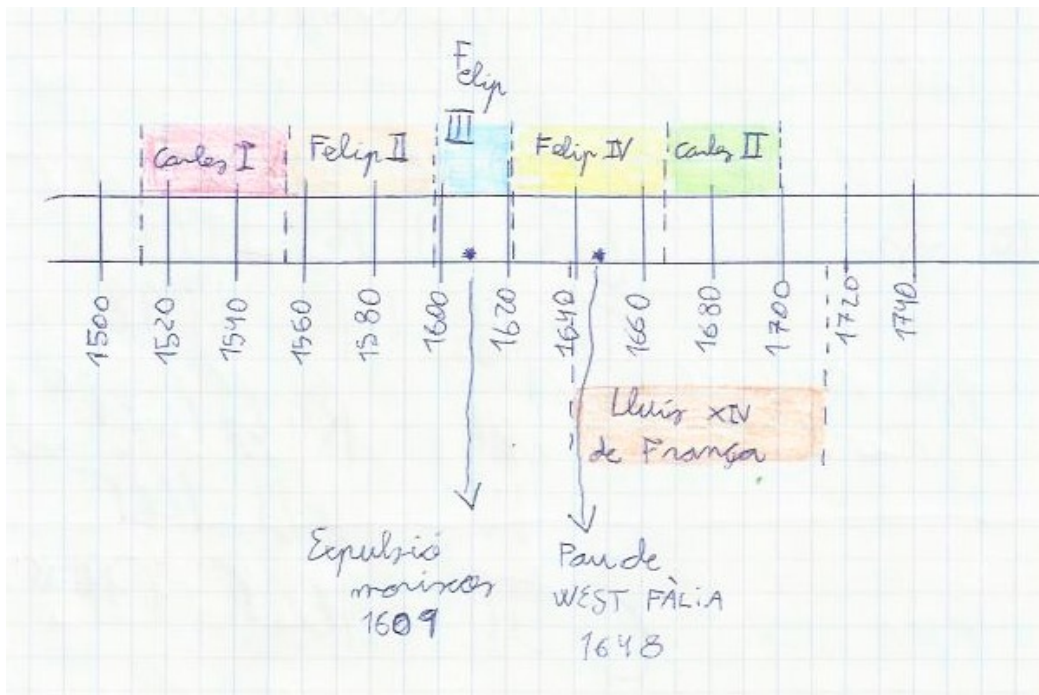 Felip
III
Carles I
Felip II
Felip IV
Carles II
1500
1520
1540
1560
1580
1600
1620
1640
1660
1680
1700
1720
1740
Lluís XIV
de França
Expulsió
moriscos
1609
Pau de
WESTFÀLiA
1648